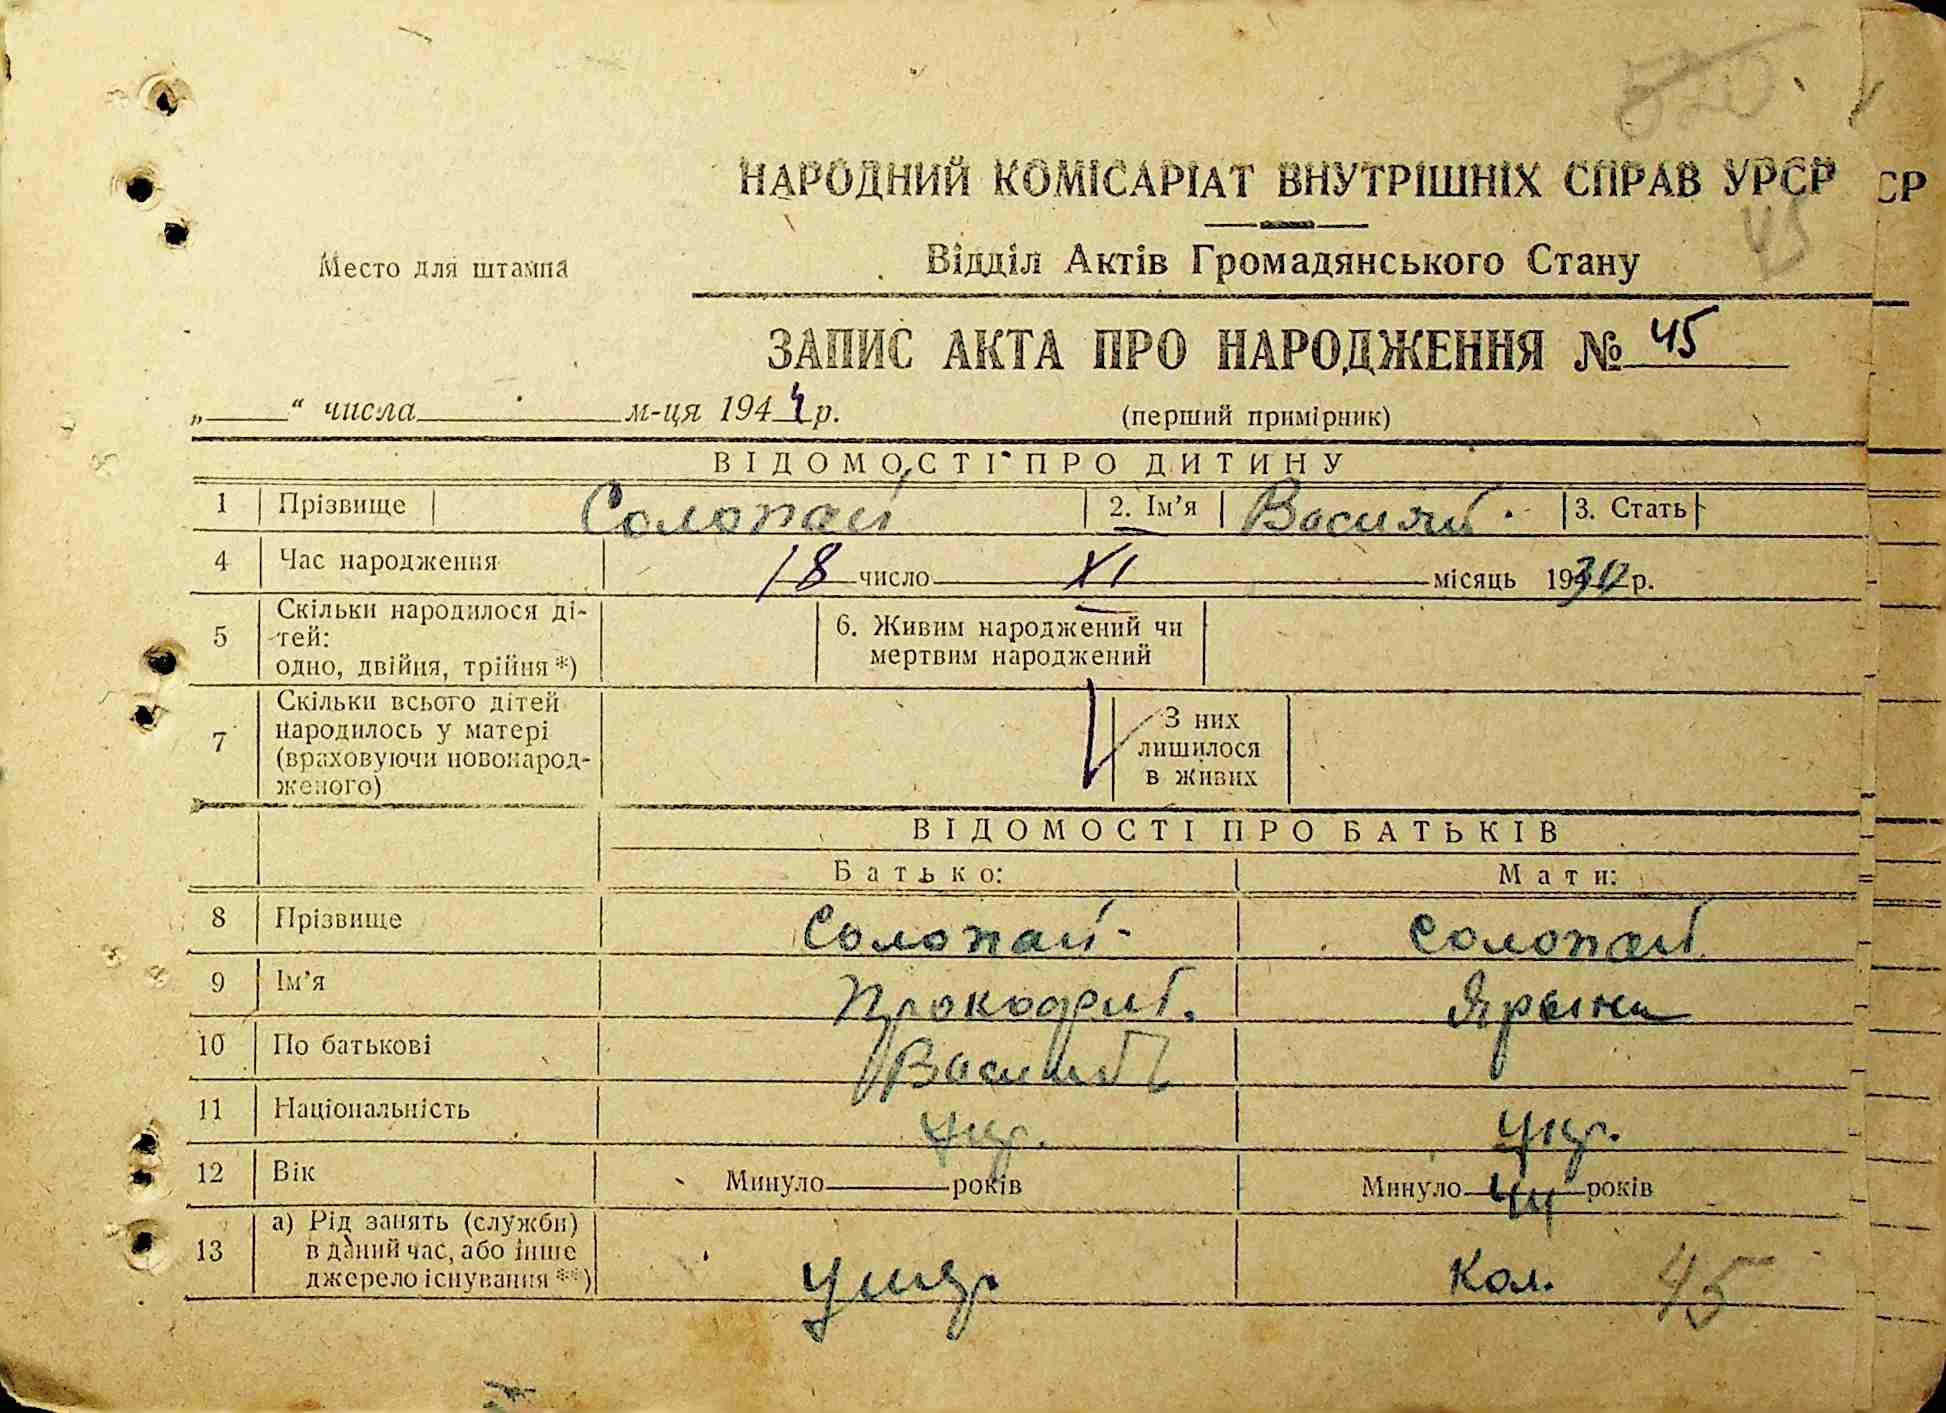 520
НАРОДНИЙ КОМІСАРІАТ ВНУТРІШНІХ СПРАВ УРСР
СР
45
Место для штампа
Відділ Актів Громадянського Стану
ЗАПИС АКТА ПРО НАРОДЖЕННЯ № 45
„ “ числа м-ця 1944 р.
(перший примірник)
ВІДОМОСТІ ПРО ДИТИНУ
1 Прізвище Солопай 2. Ім’я Василий 3. Стать
4 Час народження 18 число XI місяць 1930 р.
5 Скільки народилося ді-
тей:
одно, двійня, трійня *)
6. Живим народжений чи
мертвим народжений
7 Скільки всього дітей
народилось у матері
(враховуючи новонарод-
женого)
З них
лишилося
в живих
ВІДОМОСТІ ПРО БАТЬКІВ
Батько: Мати:
8 Прізвище Солопай Солопай
9 Ім’я
10 По батькові
11 Національність Укр. Укр.
12 Вік Минуло років Минуло 44 років
13 а) Рід занять (служби)
в даний час, або інше
джерело існування **)
умер кол. 45